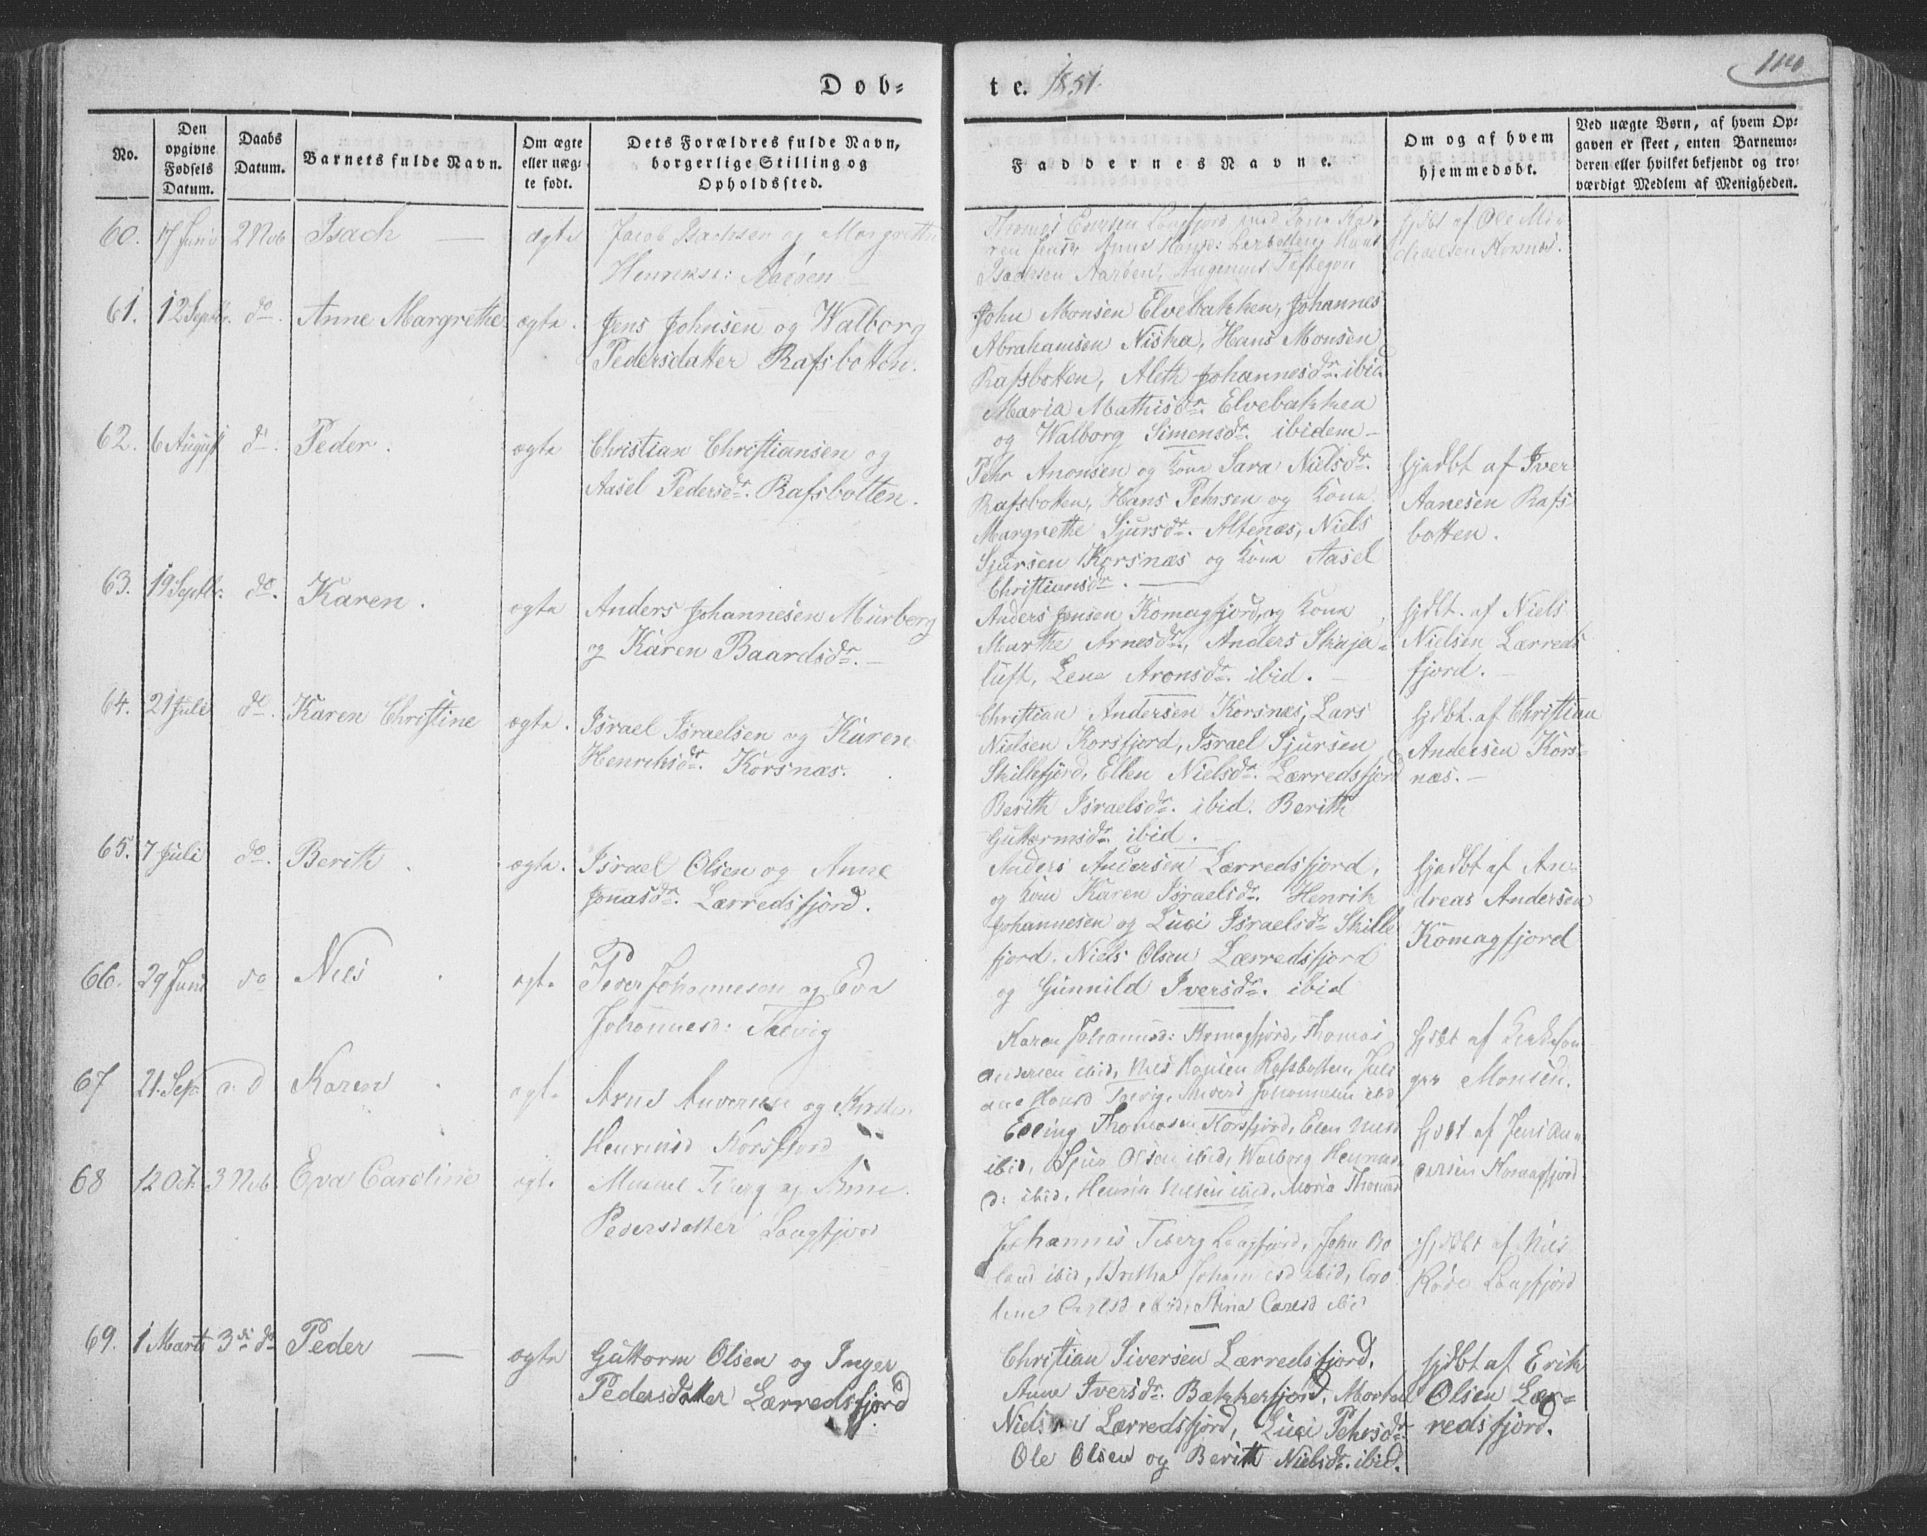 Dob-
te. 1851.
No.
Den opgivne Fødsels Datum.
Daabs Datum.
Barnets fulde Navn.
Om ægte eller uægte født.
Dets Forældres fulde Navn, borgerlige Stilling og Opholdssted.
Faddernes Navne.
Om og af hvem hjemmedøbt.
Ved uægte Børn, af hvem Opgaven er skeet, enten Barnemoderen eller hvilket bekjendt og troværdigt Medlem af Menigheden.
60. 17 Juni 2 Nov Isach — ægte
Jacob Isachsen og Margrethe
Henriksd: Aarøen
Langfjord med Kona
Isachsen Aarøen,
hjdbt af Ole Mi-
chaelsen Korsnæs.
61. 12 Septbr. do. Anne Margrethe ægte.
Jens Johnsen og Walborg
Pedersdatter Rafsbotten.
John Monsen Elvebakken, Johannes
Abrahamsen Niska, Hans Monsen
Rafsbotten, Aleth Johannesdr. ibid.
Maria Mathisdr. Elvebakken
og Walborg Simensdr. ibidem —
62. 6 August do. Peder. ægte
Christian Christiansen og
Aasel Pedersdr. Rafsbotten.
Pehr Anonsen og Kona Sara Nielsdr.
Rafsbotten, Hans Pehrsen og Kona
Margrethe Sjursdr. Altenæs, Niels
Sjursen Korsnæs og Kona Aasel
Christiansdr. —
hjedbt af Iver
Aanesen Rafs-
botten.
63. 19 Septbr. do. Karen. ægte
Anders Johannesen Murberg
og Karen Baardsdr. —
Anders Jensen Komagfjord, og Kona
Marthe Arnesdr., Anders Skaja-
luft, Lene Aronsdr. ibid. —
hjdbt. af Niels
Nielsen Lærreds-
fjord. —
64. 21 Juli do. Karen Christine ægte.
Israel Israelsen og Karen
Henriksdr. Korsnæs.
Christian Andersen Korsnæs, Lars
Nielsen Korsfjord, Israel Sjursen
Skillefjord, Ellen Nielsdr. Lærredsfjord
Berith Israelsdr. ibid. Berith
Guttormsdr. ibid. —
hjdbt. af Christian
Andersen Kors-
næs. —
65. 7 Juli do. Berith. ægte.
Israel Olsen og Anne
Jonasdr. Lærredsfjord.
Anders Andersen Lærredsfjord,
og Kona Karen Israelsdr. Henrik
Johannesen og Luci Israelsdr. Skille
fjord. Niels Olsen Lærredsfjord
og Gunnild Iversdr. ibid
hjedbt af An-
dreas Andersen
Komagfjord
66. 29 Juni do Niels. ægte
Peder Johannesen og Eva
Johannesd: Talvig
Karen Johannesd: Komagfjord, Thomas
Andersen ibid, Niels Hansen Rafsbotten,
Talvig, Johannesen ibid
hjdbt af Kirkesan
ger Monsen.
67 21. Sep. Karen. ægte
og Kirsten
Henriksd Korsfjord
Elling Thomasen Korsfjord, Elen Nielsd
ibid, Sjur Olsen ibid, Walborg Henriks
d: ibid, Henrik Nilsen ibid, Maria Thomasd
hjdbt af Jens An-
dersen Komagfjord
68 12 Oct. 3 Nov Eva Caroline ægte
Tiberg og Stine
Pedersdatter Langfjord
Johannis Tiberg Langfjord, John Bo
land ibid, Britha ibid,
Carlsd ibid, Stina Carlsd ibid
hjdbt af Niels
Røde Langfjord
69. 1 Marts 3die do Peder — ægte
Guttorm Olsen og Inger
Pedersdatter Lærredsfjord
Christian Siversen Lærredsfjord,
Anne Iversdr. Bækkerfjord, Morten
Nielsen Lærredsfjord, Luci Pehrsdr.
Ole Olsen og Berith Nielsdr. ibid.
hjdbt af Erik
Olsen Lær-
redsfjord.